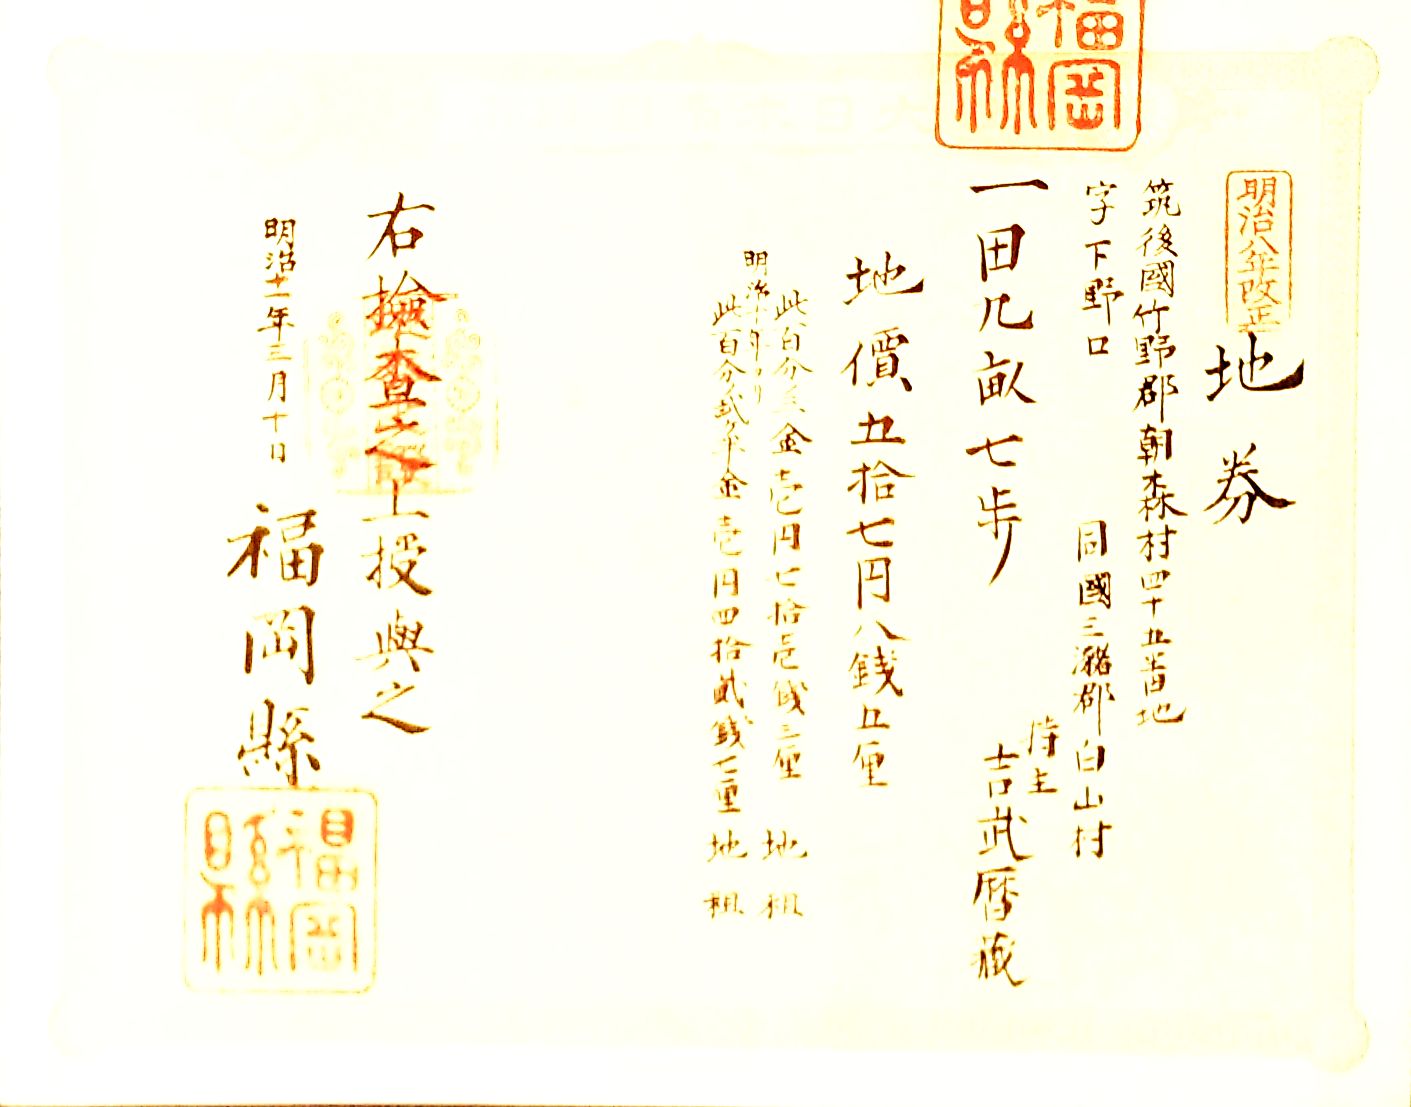 福岡縣
明治八年改正
地券
筑後國竹野郡朝森村四十五番地
字下野口
同國三潴郡白山村
一田九畝七歩
持主
吉武暦蔵
地價五拾七円八銭五厘
此百分ノ三金壱円七拾壱銭三厘 地租
明治十年ヨリ
此百分ノ弐ケ半金壱円四拾貳銭七厘 地租
右撿査之上授與之
明治十一年三月十日
福岡縣
福岡縣